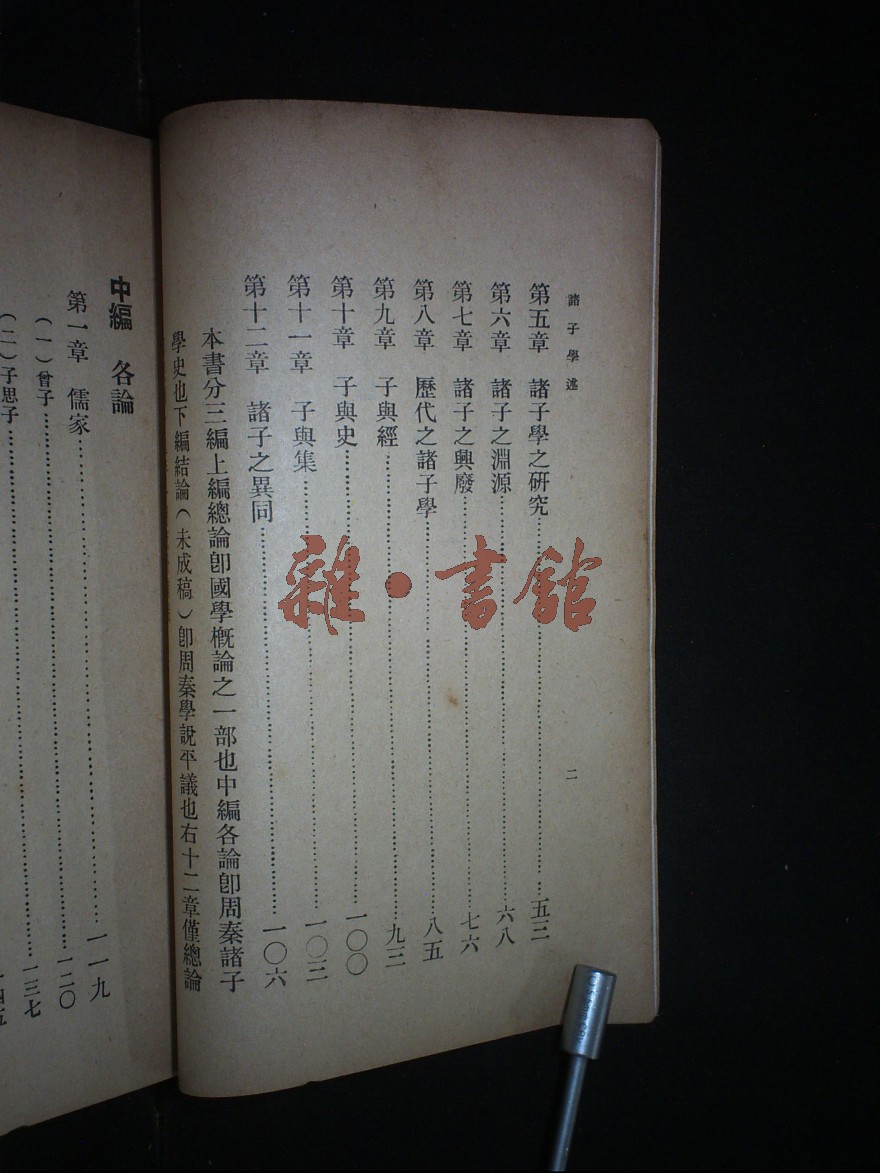 諸子學述
二
第五章 諸子學之研究……五三
第六章 諸子之淵源……六八
第七章 諸子之興廢……七六
第八章 歷代之諸子學……八五
第九章 子與經……九三
第十章 子與史……一〇〇
第十一章 子與集……一〇三
第十二章 諸子之異同……一〇六
本書分三編上編總論卽國學槪論之一部也中編各論卽周秦諸子
學史也下編結論(未成稿)卽周秦學說平議也右十二章僅總論
中編 各論……一一九
第一章 儒家……一二〇
(一)曾子……一三七
(二)子思子……一四五
雜·書館